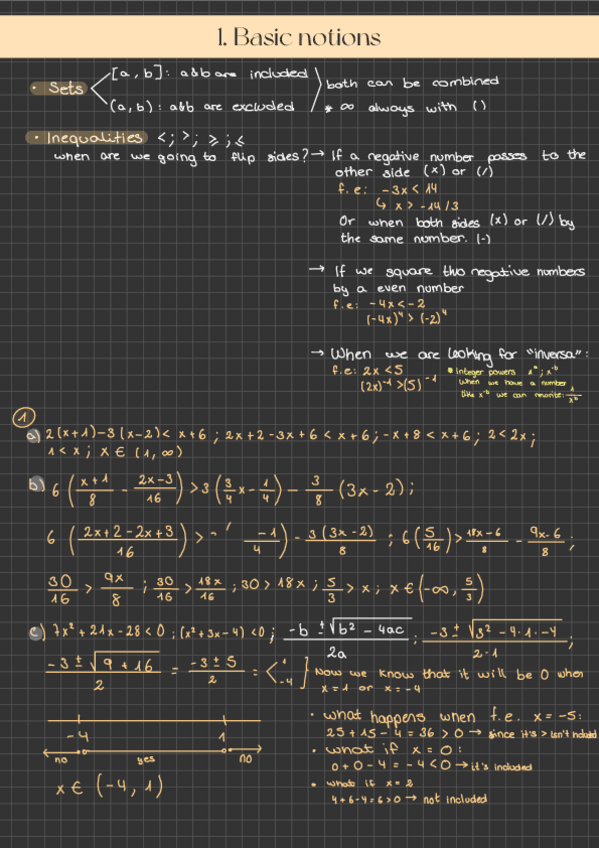 1. Basic notions
· Sets
[a, b]: a&b are included
(a, b): a&b are excluded
both can be combined
* ∞ always with ()
· Inequalities <; >; ≥; ≤
when are we going to flip sides? → If a negative number passes to the
other side (x) or (/)
f.e: -3x < 14
↳ x > -14/3
Or when both sides (x) or (/) by
the same number. (-)
→ If we square two negative numbers
by a even number
f.e: -4x < -2
(-4x)⁴ > (-2)⁴
→ When we are looking for "inversa":
f.e: 2x < 5
(2x)⁻¹ > (5)⁻¹
* integer powers
When we have a number
like x⁻ᵇ we can rewrite: 1/xᵇ
1
a) 2(x+1)-3(x-2) < x+6 ; 2x+2-3x+6 < x+6 ; -x+8 < x+6 ; 2 < 2x ;
1 < x ; x ∈ (1, ∞)
b) 6 ( (x+1)/8 - (2x-3)/16 ) > 3 ( 3/4 x - 1/4 ) - 3/8 (3x-2) ;
6 ( (2x+2-2x+3)/16 ) > -1/4 ) - 3(3x-2)/8 ; 6 (5/16) > (18x-6)/8 - (9x-6)/8 ;
30/16 > 9x/8 ; 30/16 > 18x/16 ; 30 > 18x ; 5/3 > x ; x ∈ (-∞, 5/3)
c) 7x² + 21x - 28 < 0 ; (x² + 3x - 4) < 0 ; (-b ± √(b² - 4ac))/2a ; (-3 ± √(3² - 4·1·-4))/2·1 ;
(-3 ± √(9+16))/2 = (-3 ± 5)/2 = < 1 -4
Now we know that it will be 0 when
x = 1 or x = -4
-4 1
no yes no
x ∈ (-4, 1)
· what happens when f.e. x = -5:
25 + 15 - 4 = 36 > 0 → since it's > isn't included
· what if x = 0:
0 + 0 - 4 = -4 < 0 → it's included
· what if x = 2
4 + 6 - 4 = 6 > 0 → not included